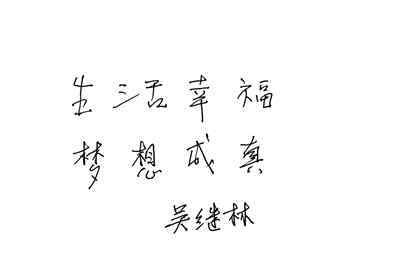 生活幸福
梦想成真
吴继林